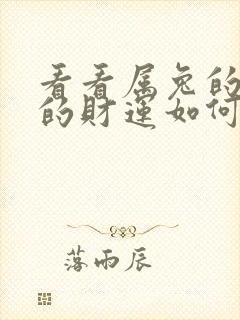 看看属兔的
的财运如何
落雨辰